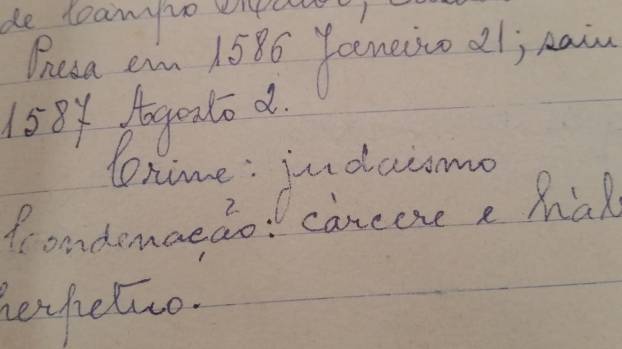 de Campo
Presa em 1586 Janeiro 21; saiu
1587 Agosto 2.
Crime: judaismo
Condenação: cárcere e háb
perpetuo.